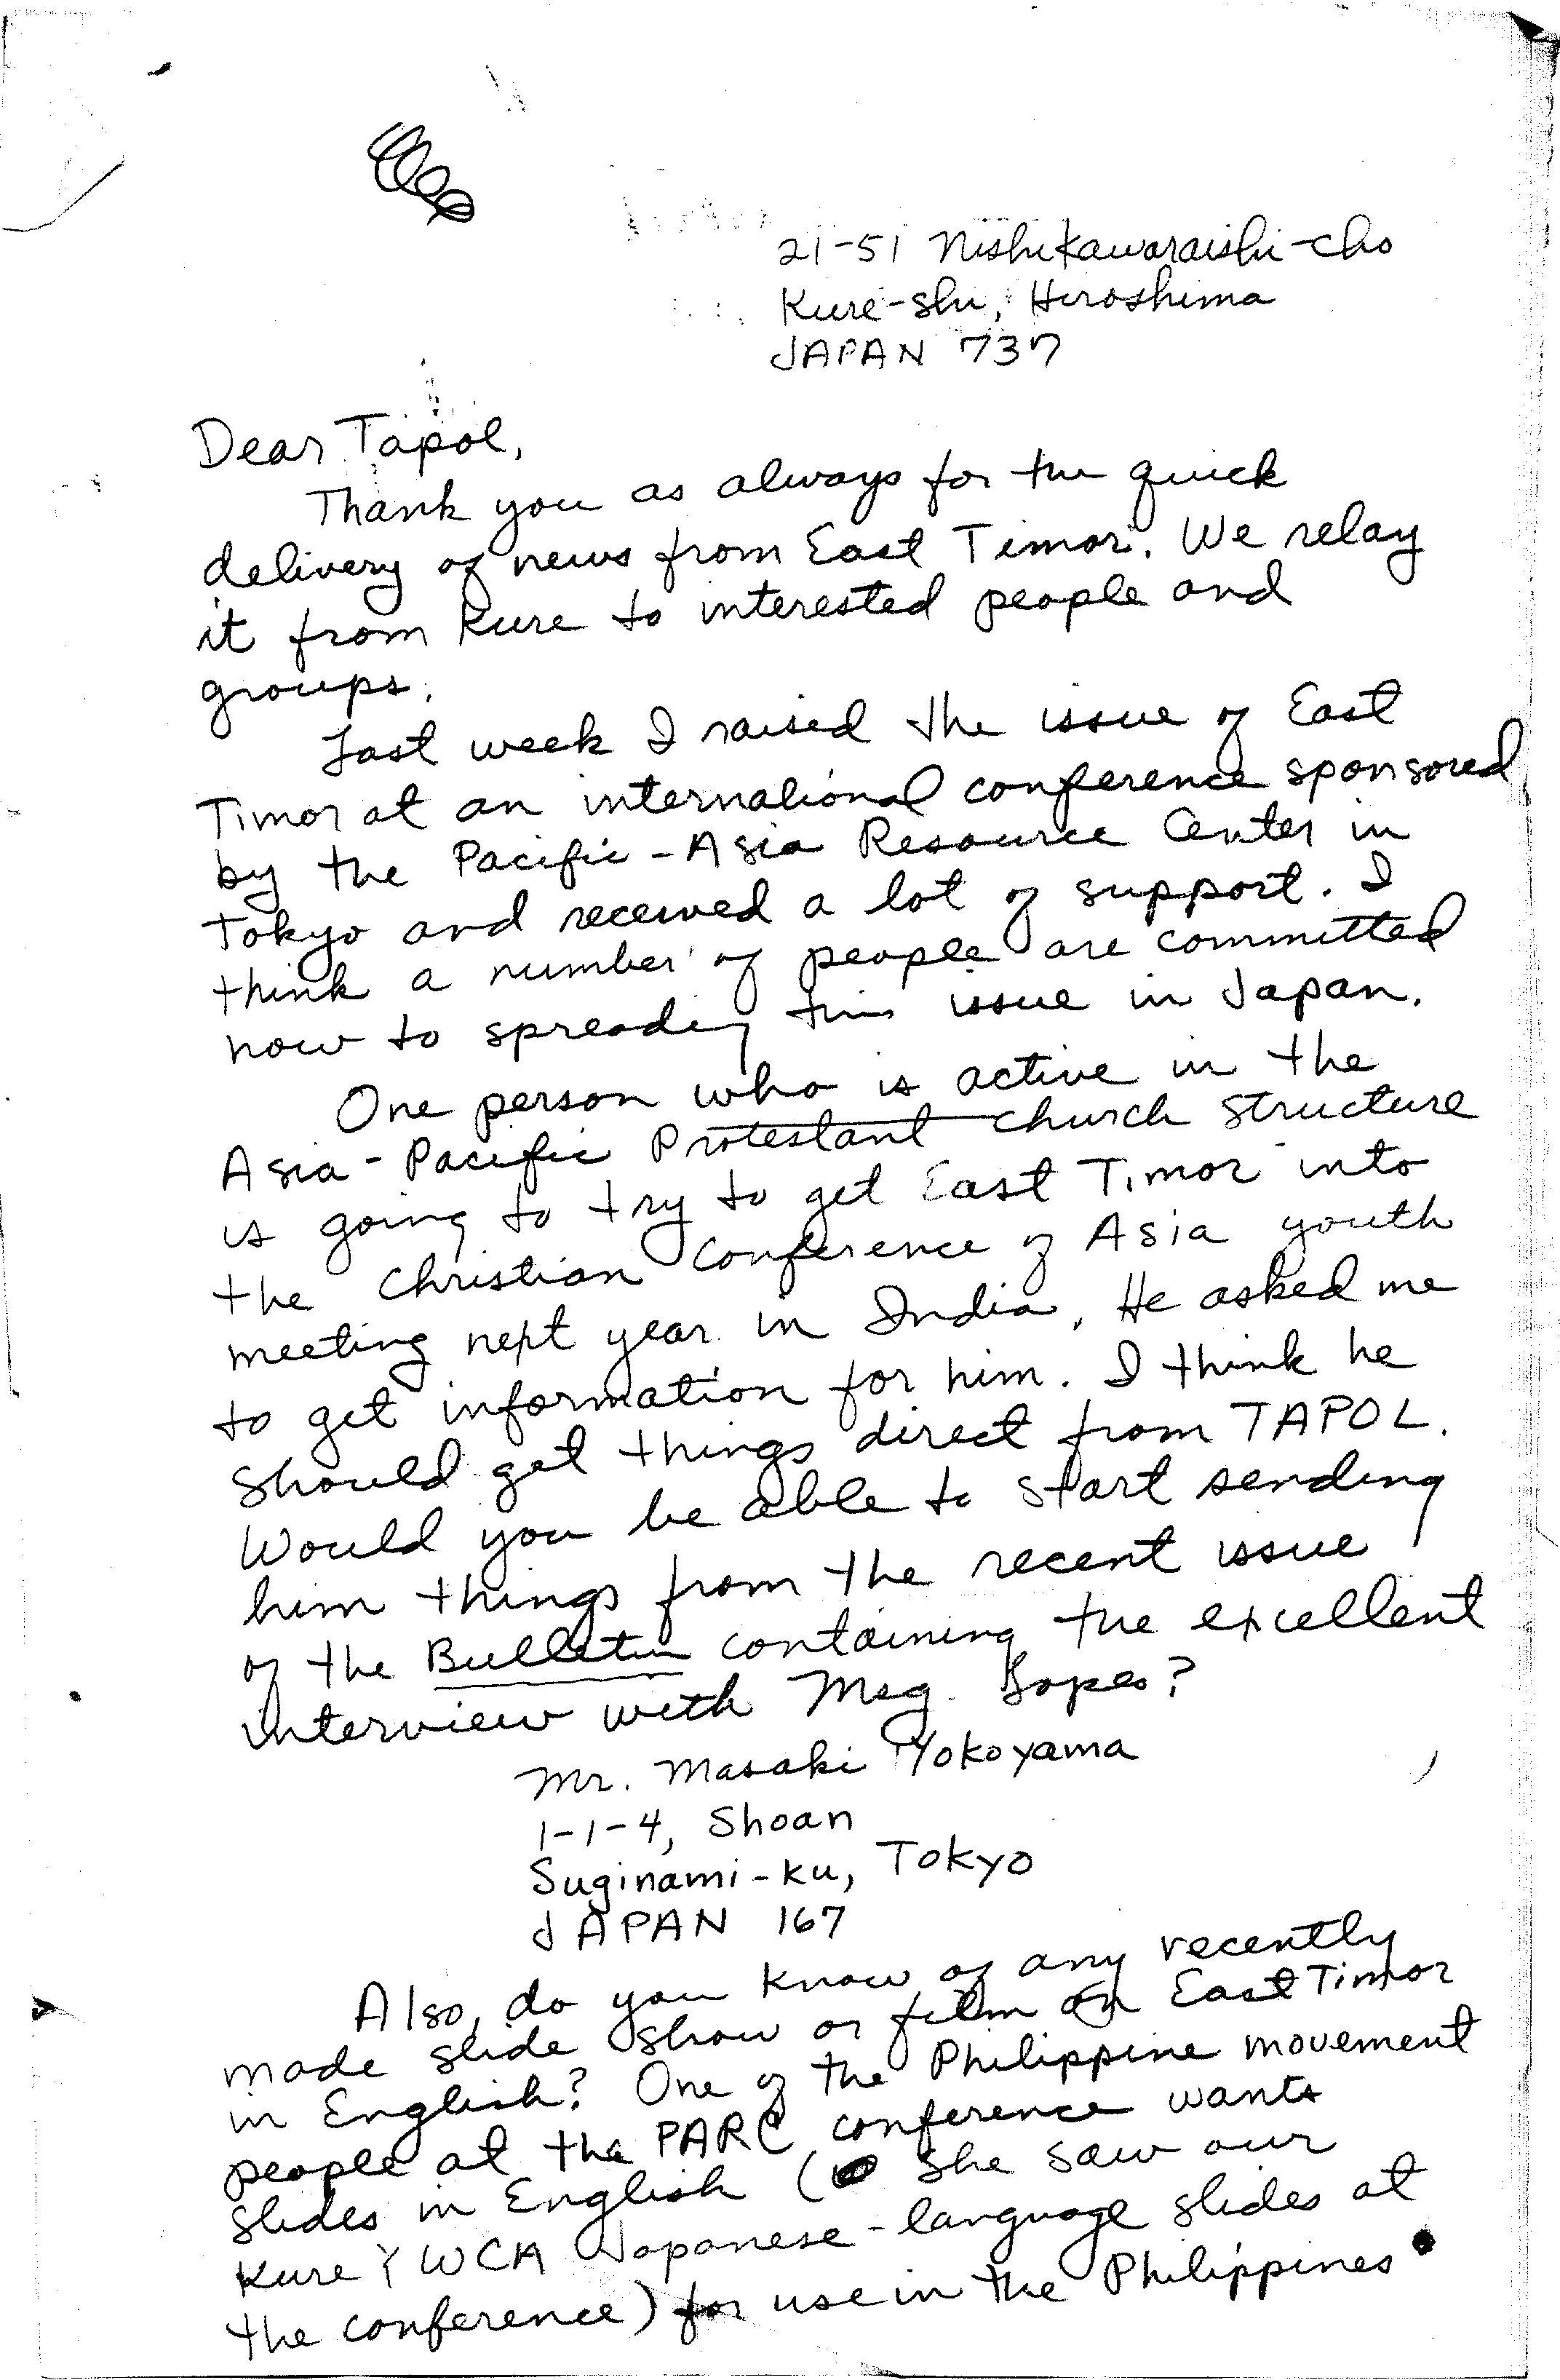 21-51 Nishikawaraishi-cho
Kure-shi, Hiroshima
JAPAN 737
Dear Tapol,
Thank you as always for the quick
delivery of news from East Timor. We relay
it from Kure to interested people and
groups.
Last week I raised the issue of East
Timor at an international conference sponsored
by the Pacific-Asia Resource Center in
Tokyo and received a lot of support. I
think a number of people are committed
now to spreading this issue in Japan.
One person who is active in the
Asia-Pacific Protestant church structure
is going to try to get East Timor into
the Christian Conference of Asia youth
meeting next year in India. He asked me
to get information for him. I think he
should get things direct from TAPOL.
Would you be able to start sending
him things from the recent issue
of the Bulletin containing the excellent
interview with Msg. Lopes?
Mr. Masaki Yokoyama
1-1-4, Shoan
Suginami-ku, Tokyo
JAPAN 167
Also, do you know of any recently
made slide show or film on East Timor
in English? One of the Philippine movement
people at the PARC conference wants
slides in English (she saw our
Kure YWCA Japanese-language slides at
the conference) for use in the Philippines.